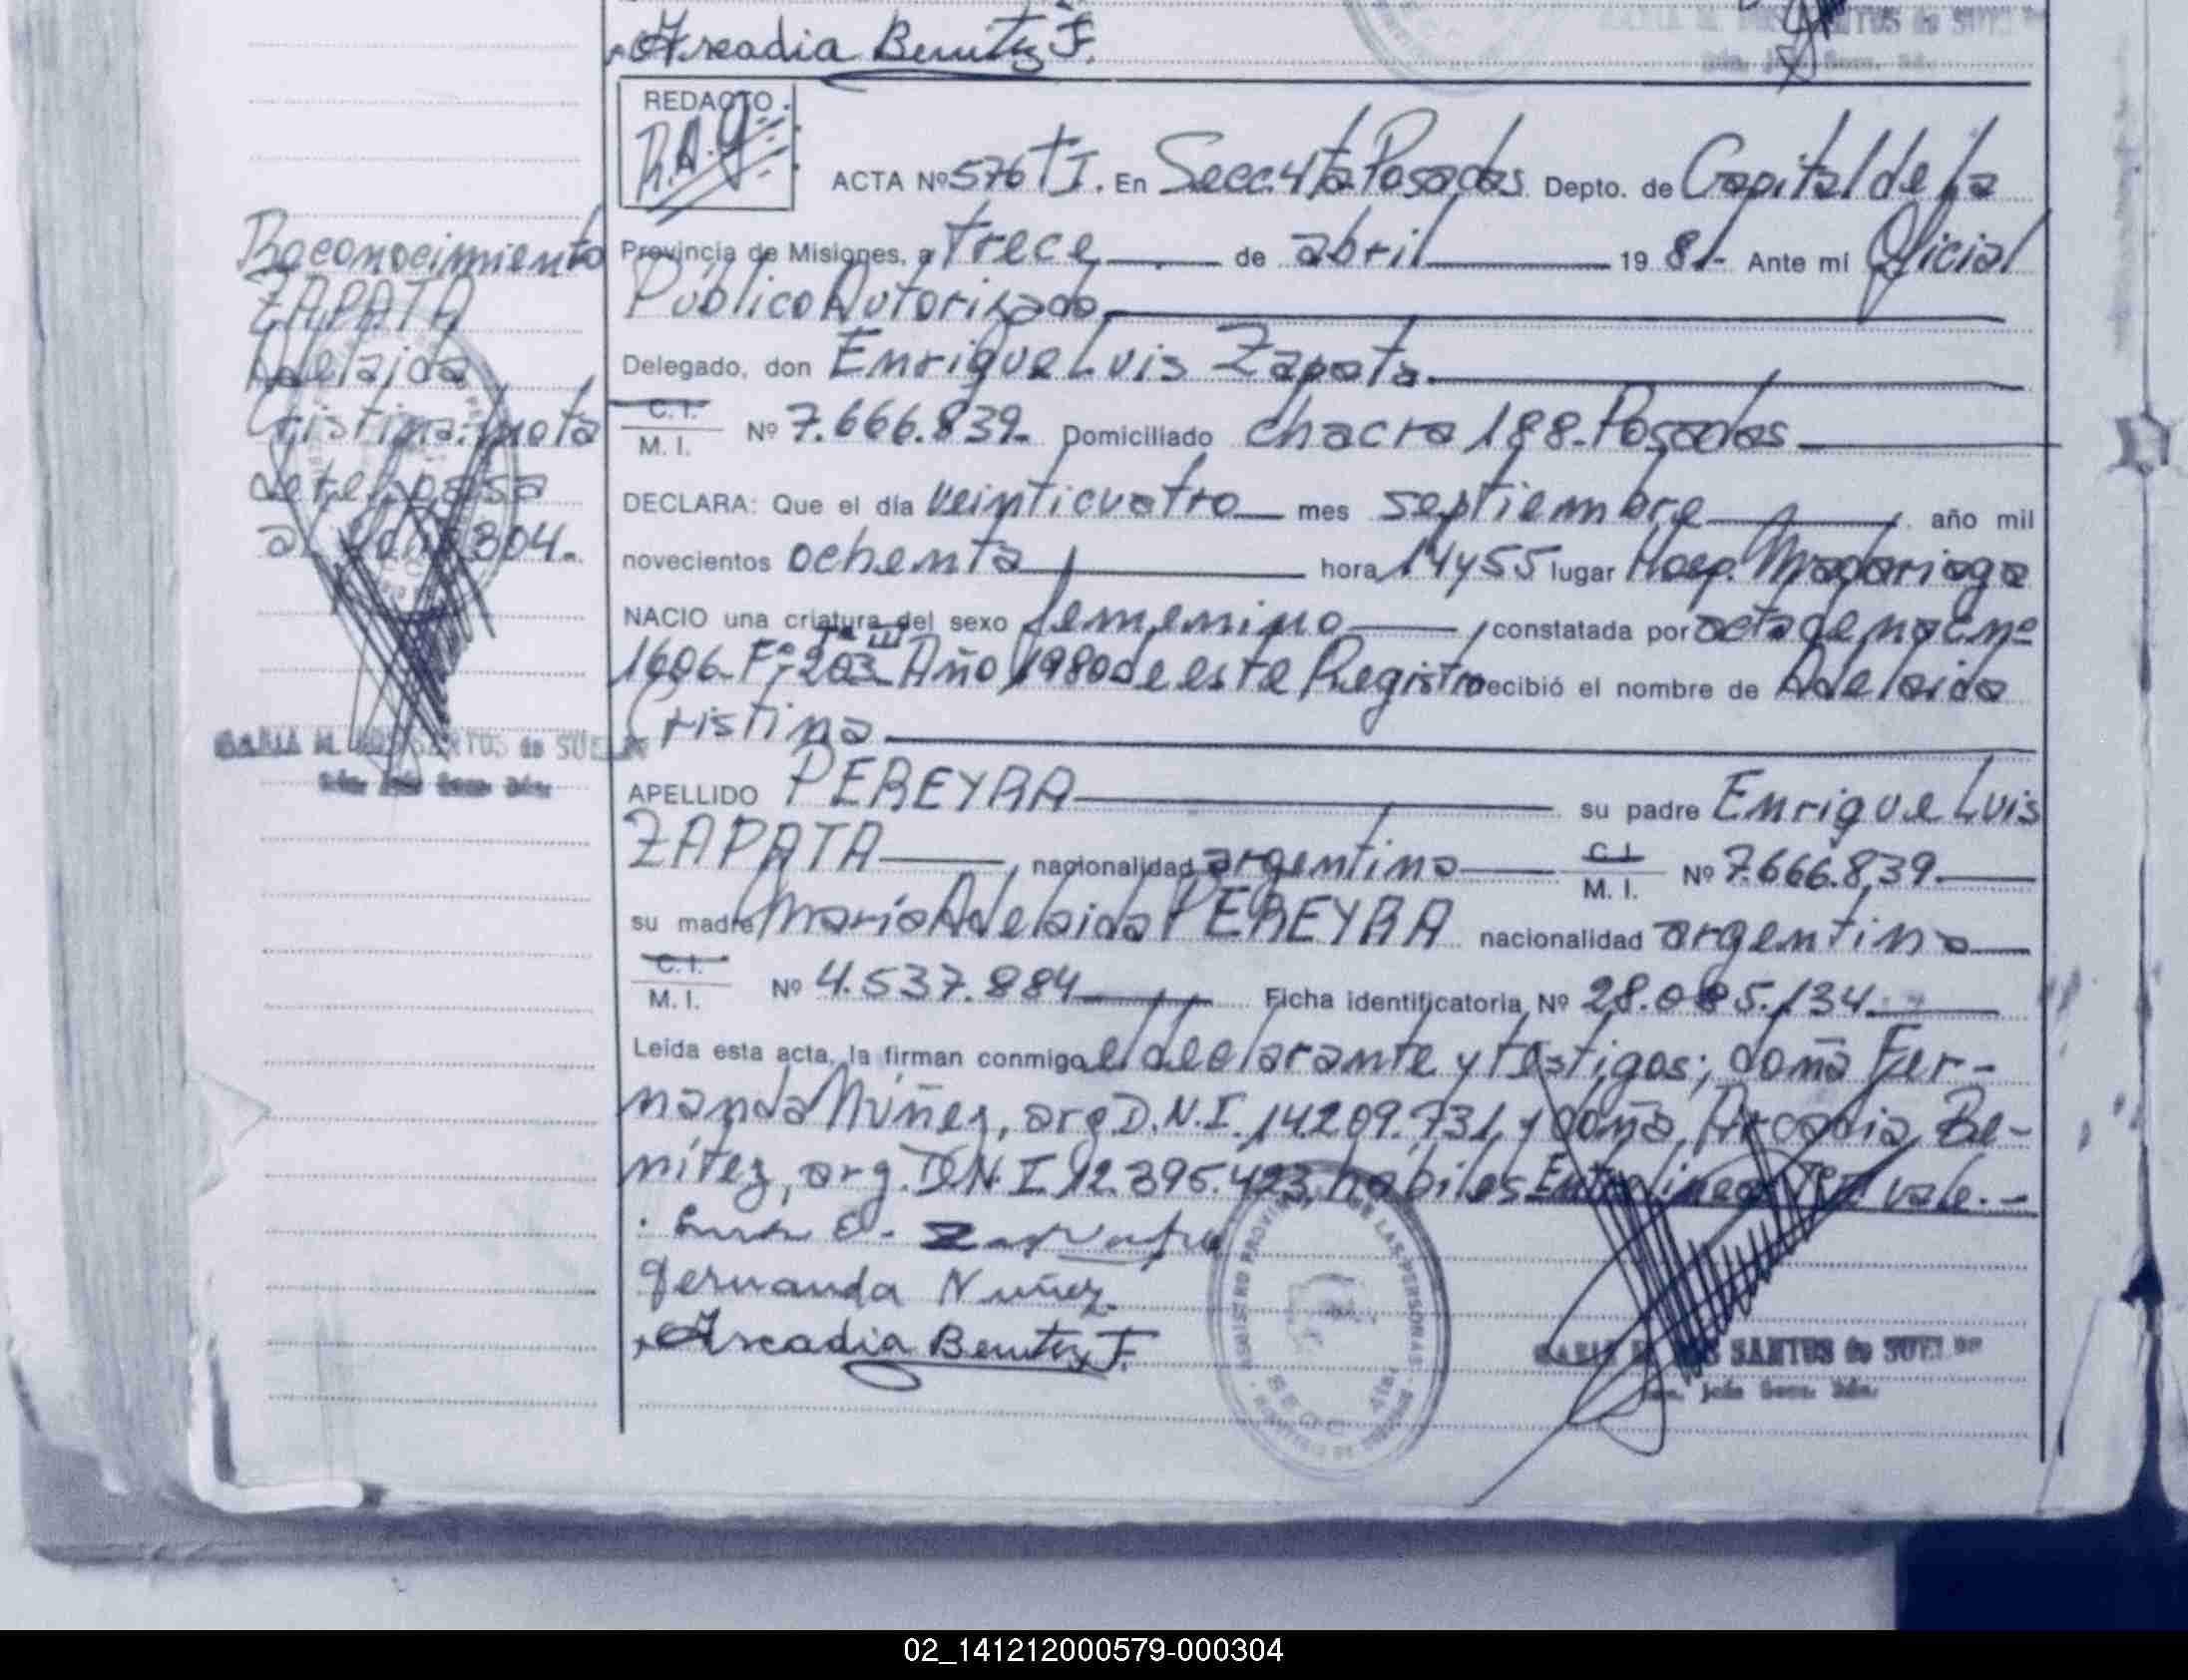 Arcadia Benitez F.
REDACTO
R.A.G.
ACTA Nº 576 TI. En Secc. 4ta Posadas Depto. de Capital de la
Provincia de Misiones, a trece de abril 1981- Ante mí Oficial
Público Autorizado
Delegado, don Enrique Luis Zapata.
C. I.
M. I. Nº 7.666.839. Domiciliado chacra 188-Posadas
DECLARA: Que el día veinticuatro mes septiembre año mil
novecientos ochenta hora 14y55 lugar Hosp. Madariaga
NACIO una criatura del sexo femenino constatada por acta de nac. nº
Tº III
1606-Fº 203 Año 1980 de este Registro recibió el nombre de Adelaida
Cristina
APELLIDO PEREYRA su padre Enrique Luis
ZAPATA nacionalidad argentina C. I. M. I. Nº 7.666.839.
su madre María Adelaida PEREYRA nacionalidad argentina
C. I.
M. I. Nº 4.537.884 Ficha identificatoria Nº 28.085.134.
Leída esta acta, la firman conmigo el declarante y testigos; doña Fer-
nanda Núñez, arg. D.N.I. 14.209.731, y doña Arcadia Be-
nítez, arg. D.N.I. 12.395.423, hábiles Entrelíneas Tº III vale.-
Zapata
Fernanda Nuñez
Arcadia Benitez F.
REGISTRO PROVINCIAL DE LAS PERSONAS
SANTOS de SUELDO
Reconocimiento
ZAPATA
Adelaida
Cristina. nota
de ref. pasa
al folio 304.-
SANTOS de SUELDO
02_141212000579-000304